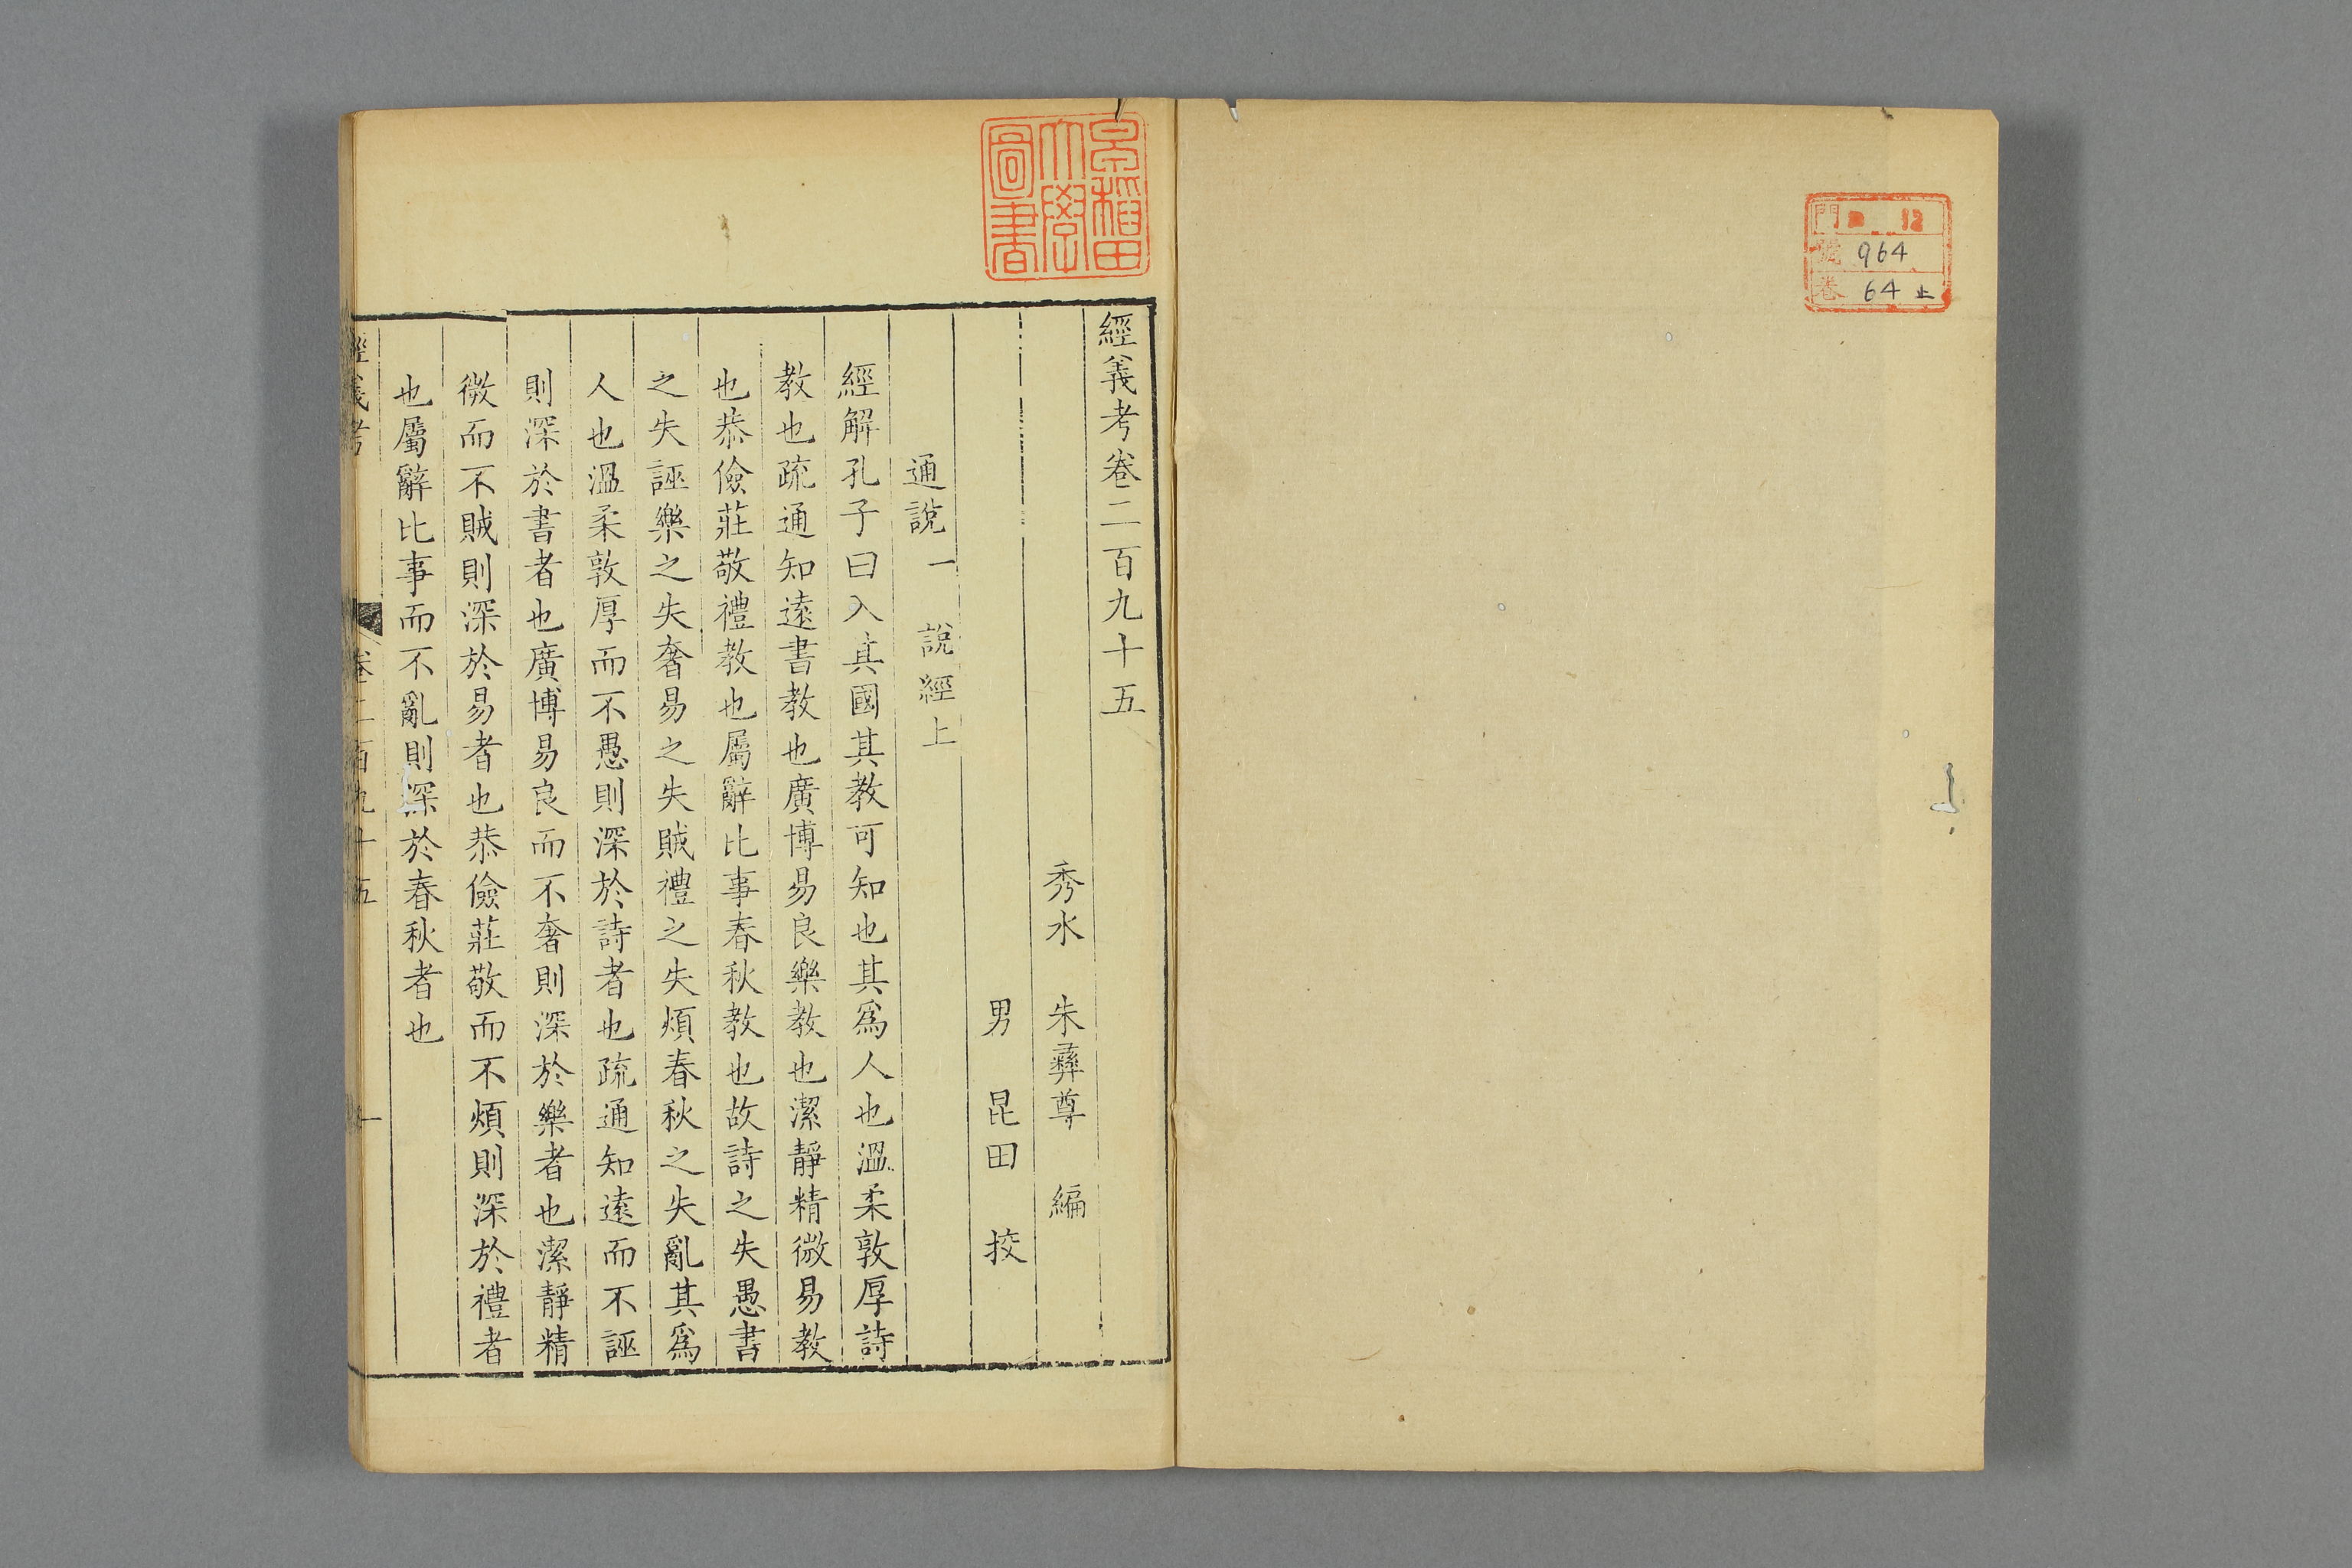 門 ロ 12
號 964
卷 64止
早稲田
大學
圖書
經義考卷二百九十五
秀水 朱彝尊 編
男 昆田 挍
通說一 說經上
經解孔子曰入其國其教可知也其爲人也溫柔敦厚詩
教也疏通知遠書教也廣博易良樂教也潔靜精微易教
也恭儉莊敬禮教也屬辭比事春秋教也故詩之失愚書
之失誣樂之失奢易之失賊禮之失煩春秋之失亂其爲
人也溫柔敦厚而不愚則深於詩者也疏通知遠而不誣
則深於書者也廣博易良而不奢則深於樂者也潔靜精
微而不賊則深於易者也恭儉莊敬而不煩則深於禮者
也屬辭比事而不亂則深於春秋者也
經義考 卷二百九十五 一